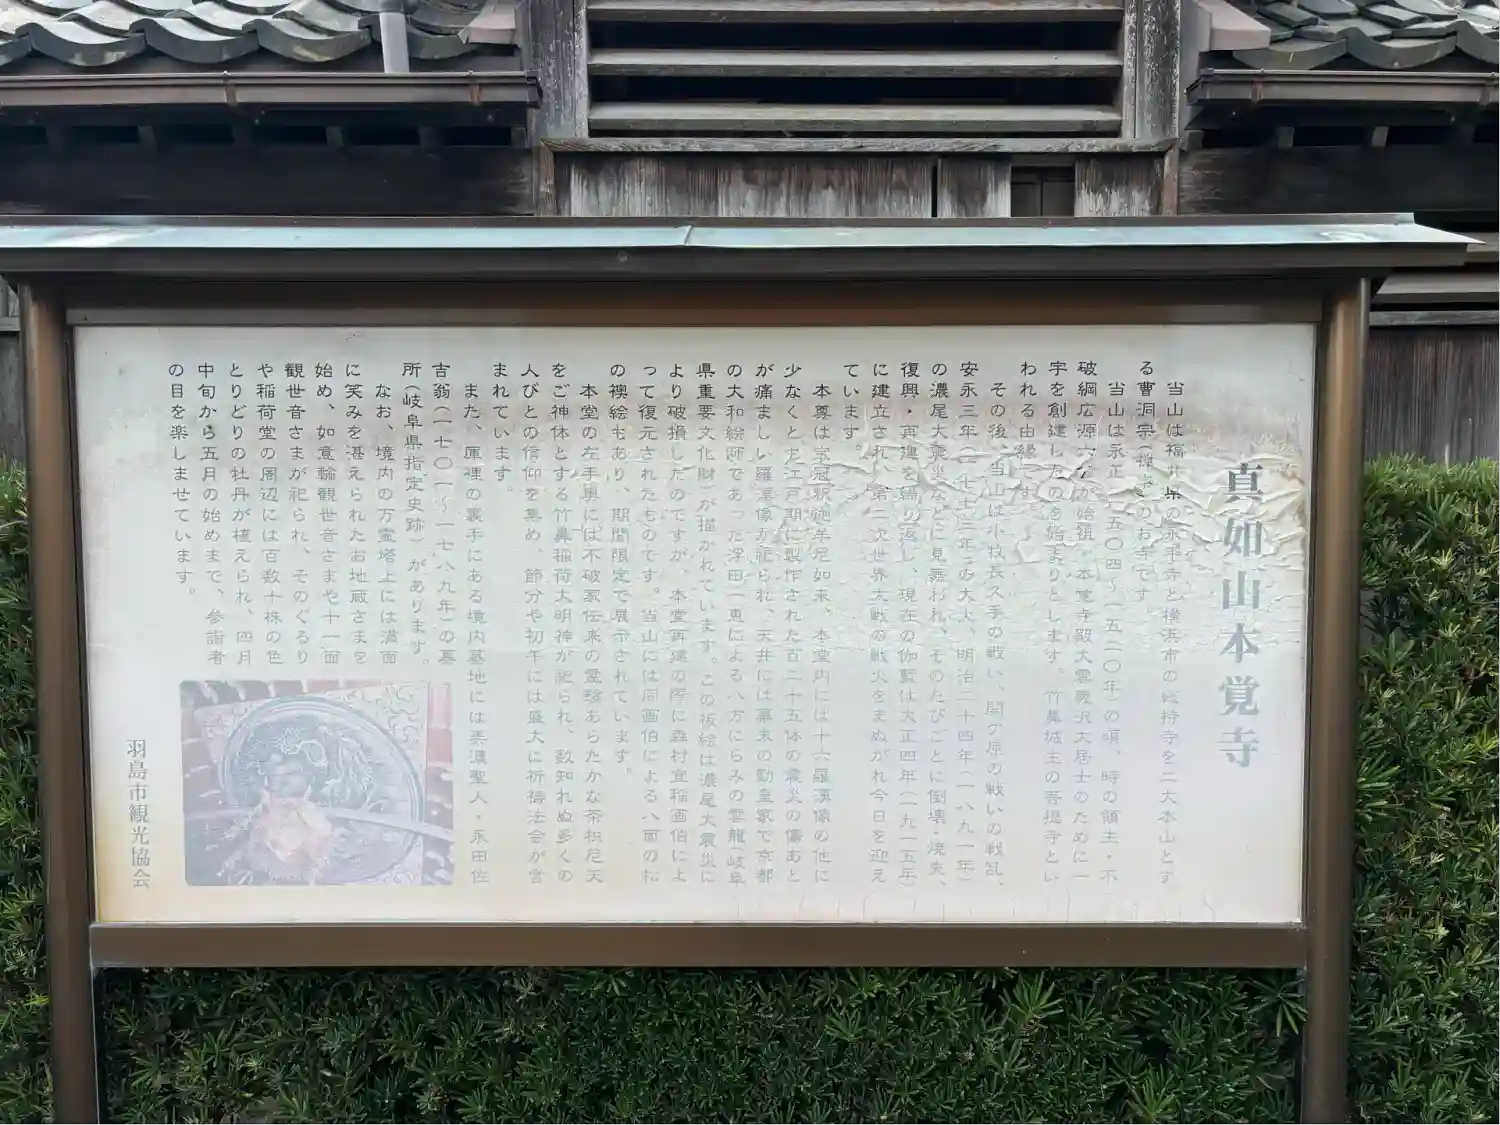 真如山本覚寺
当山は福井県の永平寺と横浜市の総持寺を二大本山とす
る曹洞宗(禅宗)のお寺です。
当山は永正(一五〇四~一五二〇年)の頃、時の領主・不
破綱広源六が始祖・本覚寺殿大雲義沢大居士のために一
宇を創建したのを始まりとします。竹鼻城主の菩提寺とい
われる由縁です。
その後、当山は小牧長久手の戦い、関ケ原の戦いの戦乱、
安永三年(一七七三年)の大火、明治二十四年(一八九一年)
の濃尾大震災などに見舞われ、そのたびごとに倒壊・焼失、
復興・再建を繰り返し、現在の伽藍は大正四年(一九一五年)
に建立され、第二次世界大戦の戦火をまぬがれ今日を迎え
ています。
本尊は宝冠釈迦牟尼如来、本堂内には十六羅漢像の他に
少なくとも江戸期に製作された百二十五体の震災の傷あと
が痛ましい羅漢像が祀られ、天井には幕末の勤皇家で京都
の大和絵師であった浮田一恵による八方にらみの雲龍(岐阜
県重要文化財)が描かれています。この板絵は濃尾大震災に
より破損したのですが、本堂再建の際に森村宜稲画伯によ
って復元されたものです。当山には同画伯による八面の杜
の襖絵もあり、期間限定で展示されています。
本堂の左手奥には不破家伝来の霊験あらたかな荼枳尼天
をご神体とする竹鼻稲荷大明神が祀られ、数知れぬ多くの
人びとの信仰を集め、節分や初午には盛大に祈祷法会が営
まれています。
また、庫裡の裏手にある境内墓地には美濃聖人・永田佐
吉翁(一七〇一~一七八九年)の墓
所(岐阜県指定史跡)があります。
なお、境内の万霊塔上には満面
に笑みを湛えられたお地蔵さまを
始め、如意輪観世音さまや十一面
観世音さまが祀られ、そのぐるり
や稲荷堂の周辺には百数十株の色
とりどりの牡丹が植えられ、四月
中旬から五月の始めまで、参詣者
の目を楽しませています。
羽島市観光協会